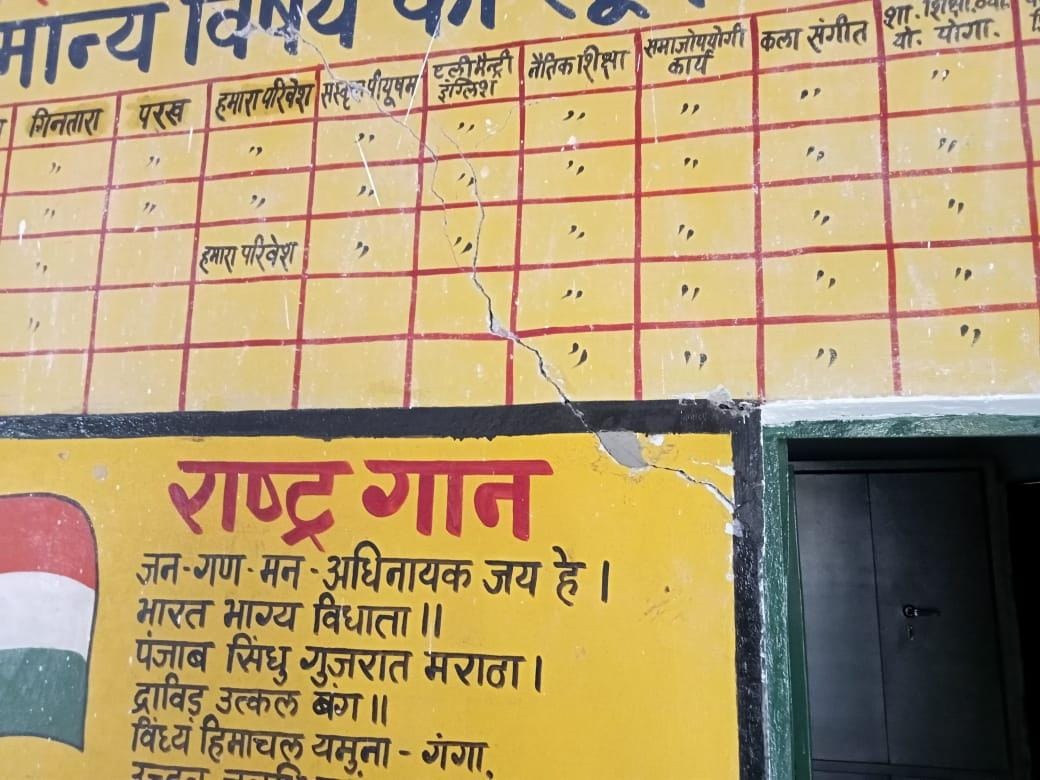 मान्य विषय की
गिनतारा परख हमारा परिवेश संस्कृत पीयूषम एलीमैन्ट्री इंग्लिश नैतिक शिक्षा समाजोपयोगी कार्य कला संगीत शा. शिक्षा. यो. योगा.
" " " " " " " " "
" " " " " " " " "
" हमारा परिवेश " " " " " "
" " " " "
" " " "
राष्ट्र गान
जन-गण-मन-अधिनायक जय हे ।
भारत भाग्य विधाता ॥
पंजाब सिंधु गुजरात मराठा ।
द्राविड़ उत्कल बंग ॥
विंध्य हिमाचल यमुना - गंगा.